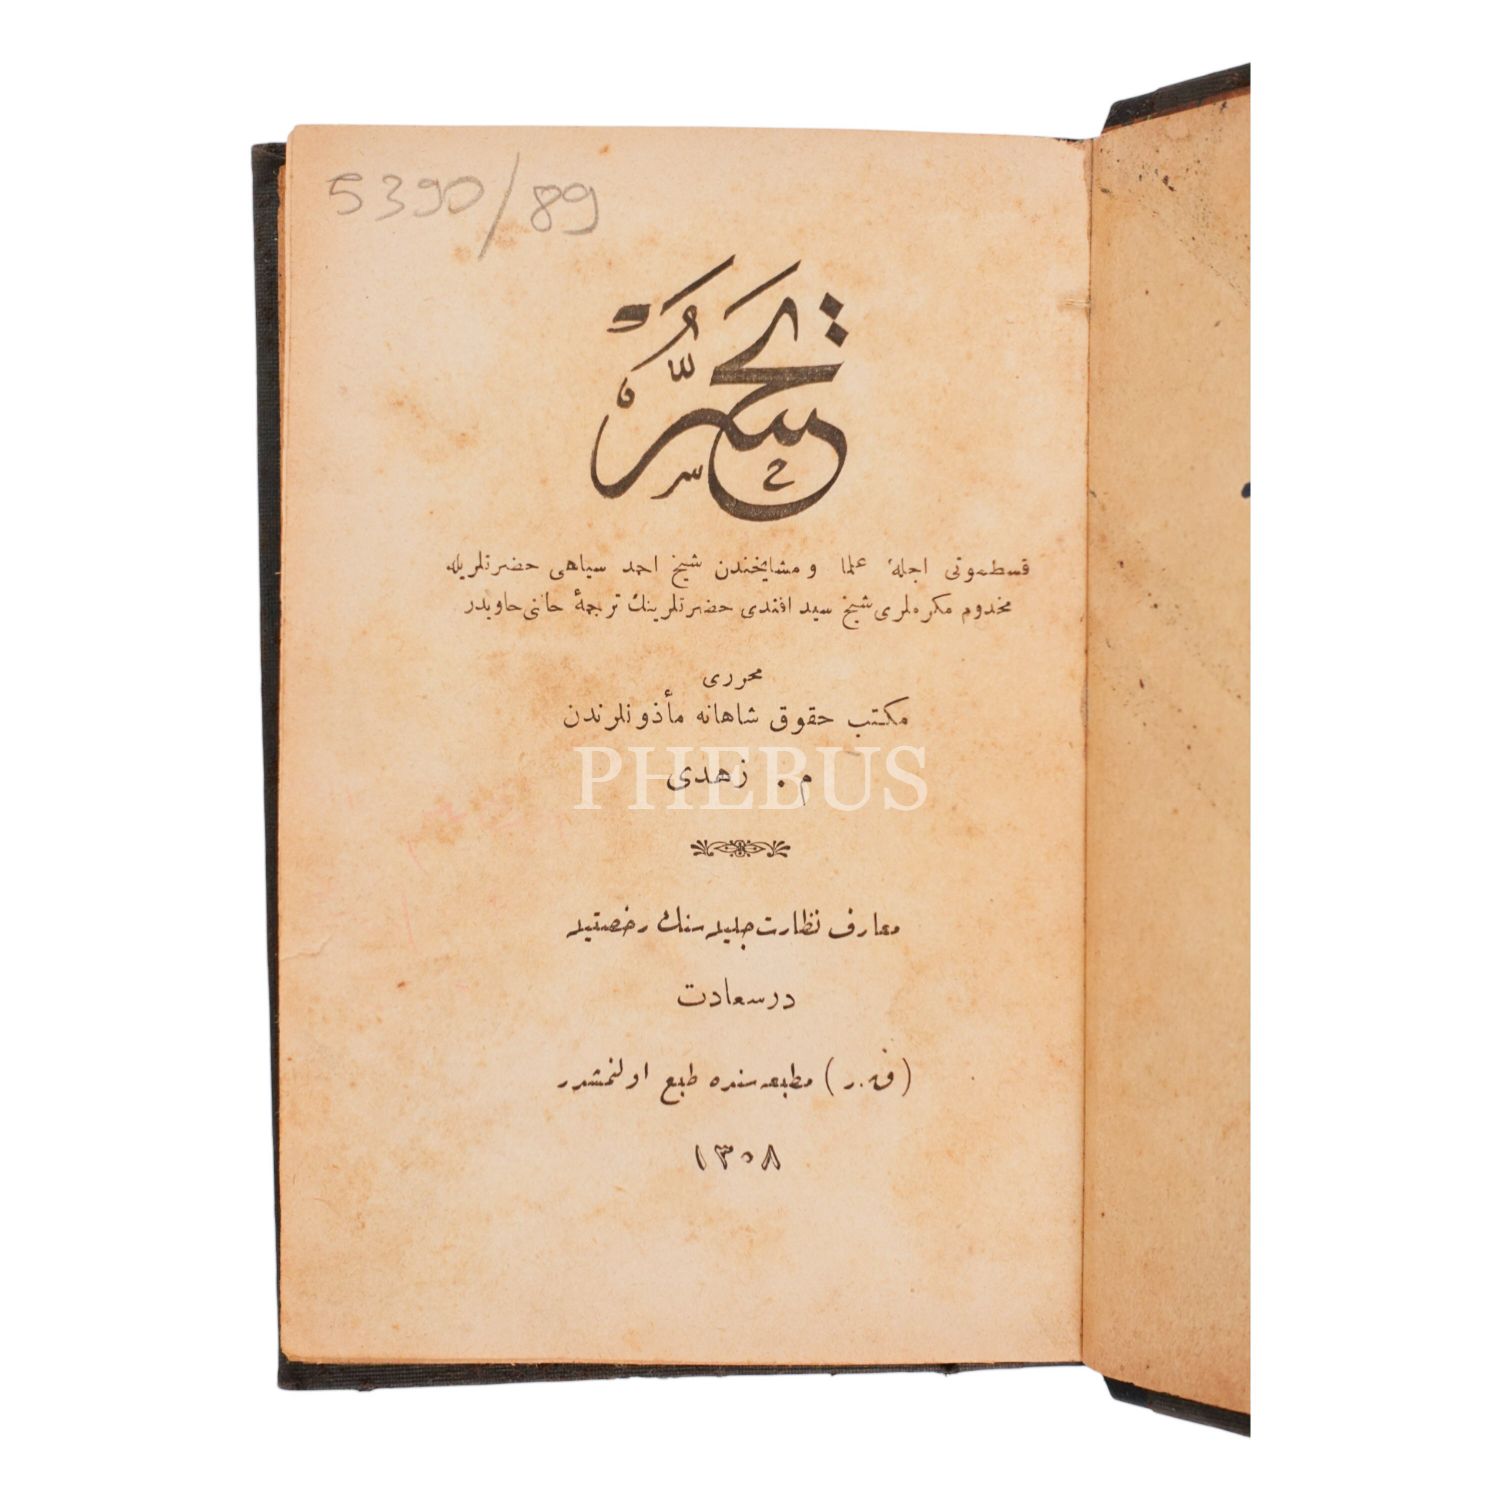 5390/89
تحسّر
قسطمونی اجلهٔ علما و مشایخندن شیخ احمد سیاهی حضرتلریله
مخدوم مکرملری شیخ سید افندی حضرتلرینك ترجمهٔ حالنی حاویدر
محرری
مکتب حقوق شاهانه مأذونلرندن
م. زهدی
PHEBUS
معارف نظارت جلیله‌سنك رخصتیله
درسعادت
(ق. ر) مطبعه‌سنده طبع اولنمشدر
۱۳۰۸